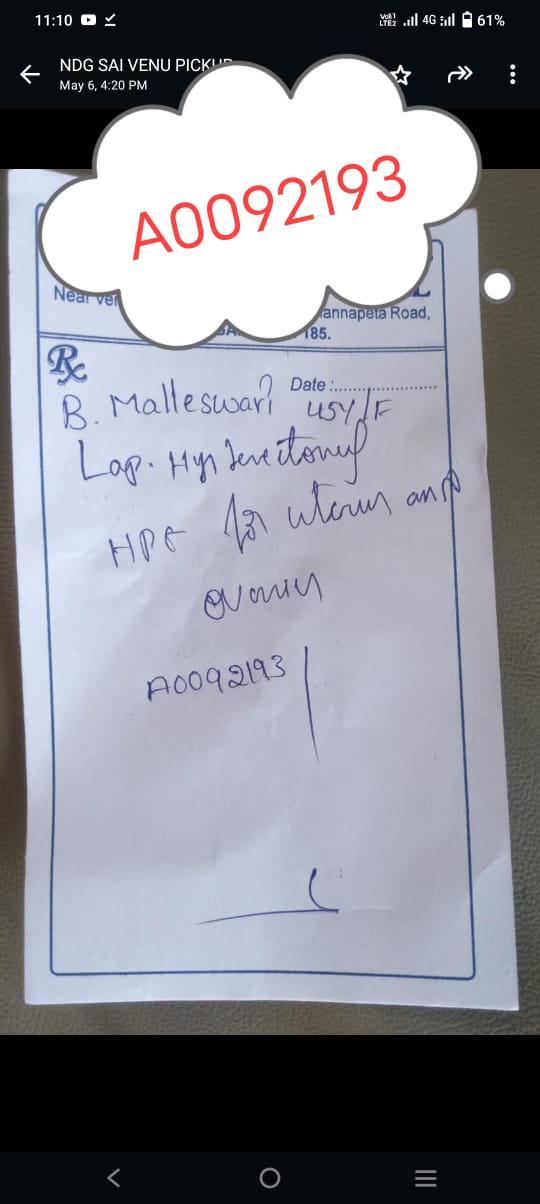 11:10 VoI1 LTE2 4G 61%
NDG SAI VENU PICKUP
May 6, 4:20 PM
A0092193
Near Ve
annapeta Road,
185.
Rx
Date :
B. Malleswari 45Y/F
Lap. Hysterectomy
HPE for uterus and
ovaries
A0092193